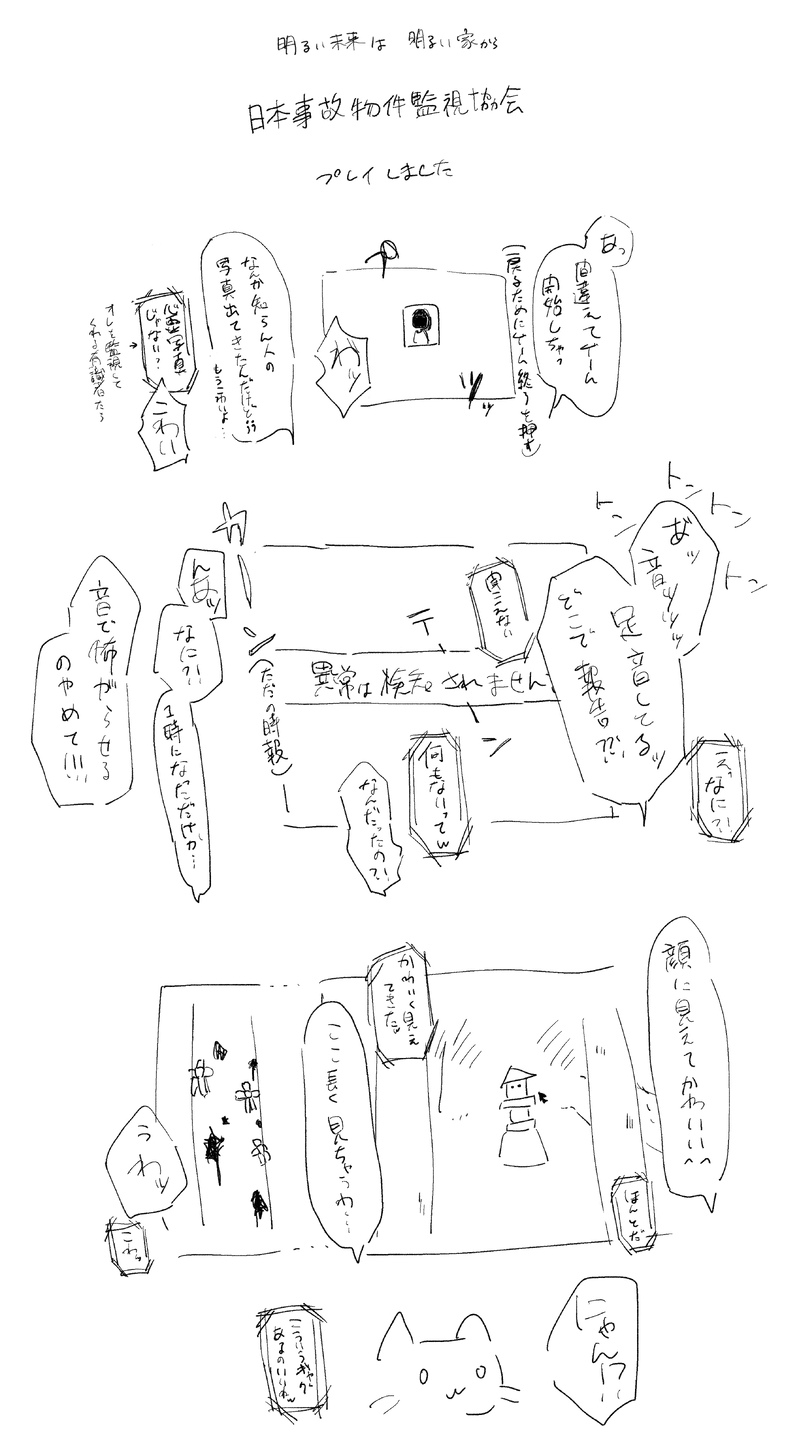 明るい未来は 明るい家から
日本事故物件監視協会
プレイしました
あっ
間違えてゲーム
開始しちゃっ
(戻るためにゲーム終了を押す)
パ
ッ
わッ
なんか知らん人の
写真出てきたんだけど…
もうこわいよ…
心霊写真
じゃない?
こわい
オレを監視して
くれる有識者たち
トン
トン
トン
トン
あ゛ッ
音ッッッ
足音してるッ
どこで報告?!
え゛なに?!
聞こえない
テ
ーン
異常は検知されません
何もないってw
なんだったの?!
カーン
(ただの時報)
んあ゛ッ
なに?!
1時になっただけか…
音で怖がらせる
のやめて!!!
顔に見えてかわいい^^
ほんとだ
かわいく見え
てきたw
ここ長く見ちゃうわ…
うわッ
こわっ
にゃん!?
こういうギャグ
あるのいいねw